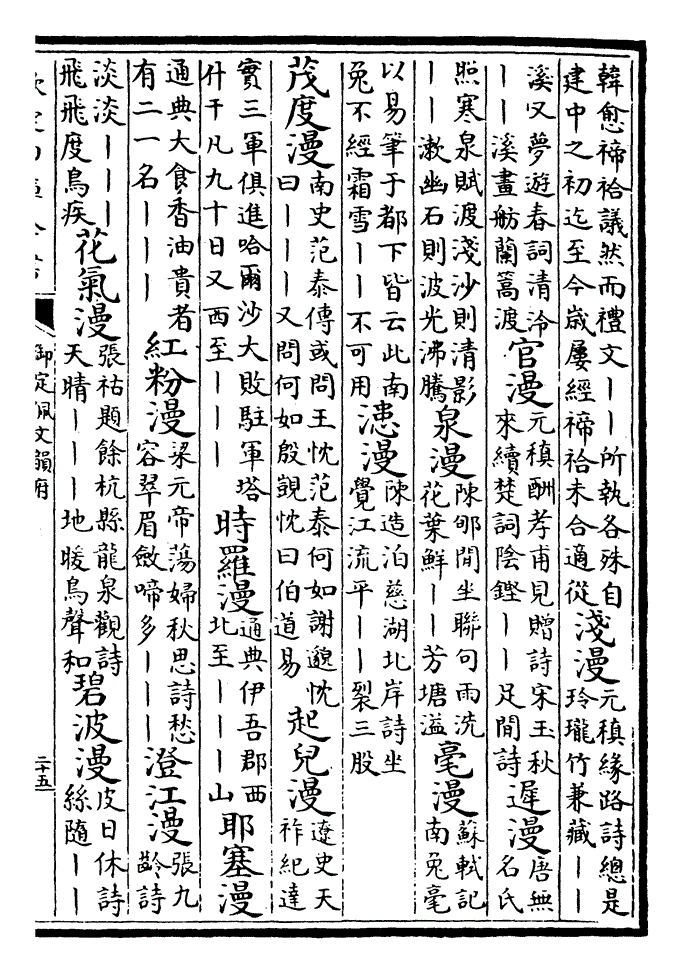 韓愈禘祫議然而禮文——所執各殊自
建中之初迄至今歲屢經禘祫未合適從
淺漫
元稹緣路詩總是
玲瓏竹兼藏——
溪又夢遊春詞清泠
——溪畫舫蘭篙渡
官漫
元稹酬孝甫見贈詩宋玉秋
來續楚詞陰鏗——足閒詩
遲漫
唐無
名氏
照寒泉賦渡淺沙則清影
——漱幽石則波光沸騰
泉漫
陳郇閒坐聯句雨洗
花葉鮮——芳塘溢
毫漫
蘇軾記
南兔毫
以易筆于都下皆云此南
兔不經霜雪——不可用
漶漫
陳造泊慈湖北岸詩坐
覺江流平——裂三股
茂度漫
南史范泰傳或問王忱范泰何如謝邈忱
曰———又問何如殷覬忱曰伯道易
起兒漫
遼史天
祚紀達
實三軍俱進哈爾沙大敗駐軍塔
什干凡九十日又西至———
時羅漫
通典伊吾郡西
北至———山
耶塞漫
通典大食香油貴者
有二一名———
紅粉漫
梁元帝蕩婦秋思詩愁
容翠眉斂啼多———
澄江漫
張九
齡詩
淡淡———
飛飛度鳥疾
花氣漫
張祜題餘杭縣龍泉觀詩
天晴———地暖鳥聲和
碧波漫
皮日休詩
絲隨——
御定佩文韻府
二十五